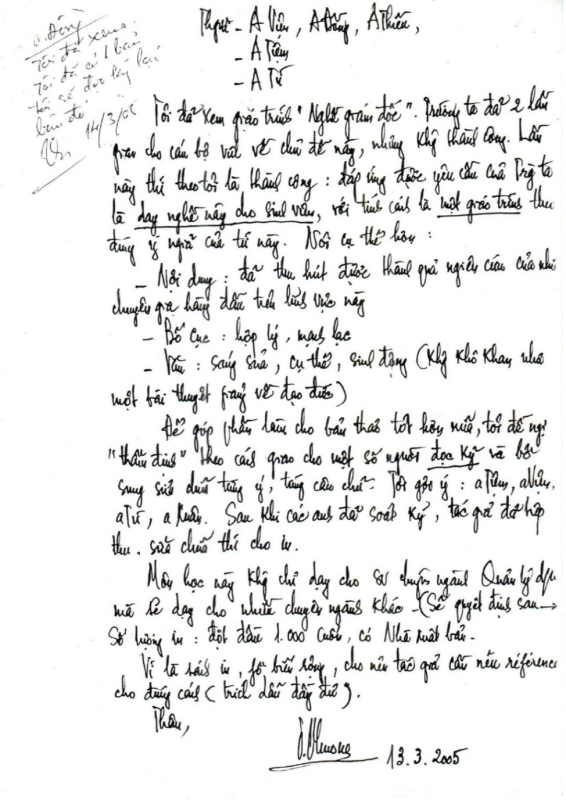 a. Đồng
Tôi đã xem.
Tôi đã có 1 bản
tôi sẽ đưa lại
bản đó
14/3/05
Thân gửi - A Viên, A Đồng, A Thiền,
- A Tiệm
- A Tú
Tôi đã xem giáo trình "Nghề giám đốc". Trường ta đã 2 lần
giao cho cán bộ viết về chủ đề này, nhưng khg thành công. Lần
này thì theo tôi là thành công: đáp ứng được yêu cầu của Trg ta
là dạy nghề này cho sinh viên, với tính cách là một giáo trình theo
đúng ý nghĩa của từ này. Nói cụ thể hơn:
- Nội dung: đã thu hút được thành quả nghiên cứu của nhiều
chuyên gia hàng đầu trên lĩnh vực này
- Bố cục: hợp lý, mạch lạc
- Văn: sáng sủa, cụ thể, sinh động (khg khô khan như
một bài thuyết giảng về đạo đức)
Để góp phần làm cho bản thảo tốt hơn nữa, tôi đề nghị
"thẩm định" theo cách giao cho một số người đọc kỹ và bổ
sung sửa chữa từng ý, từng câu chữ. Tôi gợi ý: a Tiệm, a Viên,
a Tú, a Xuân. Sau khi các anh đã soát kỹ, tác giả đã tiếp
thu, sửa chữa thì cho in.
Môn học này khg chỉ dạy cho sv chuyên ngành Quản lý
mà sẽ dạy cho nhiều chuyên ngành khác (Sẽ quyết định sau →
Số lượng in: đợt đầu 1.000 cuốn, có Nhà xuất bản.
Vì là sách in, phổ biến rộng, cho nên tác giả cần nêu référence
cho đúng cách (trích dẫn đầy đủ).
Thân,
13.3.2005